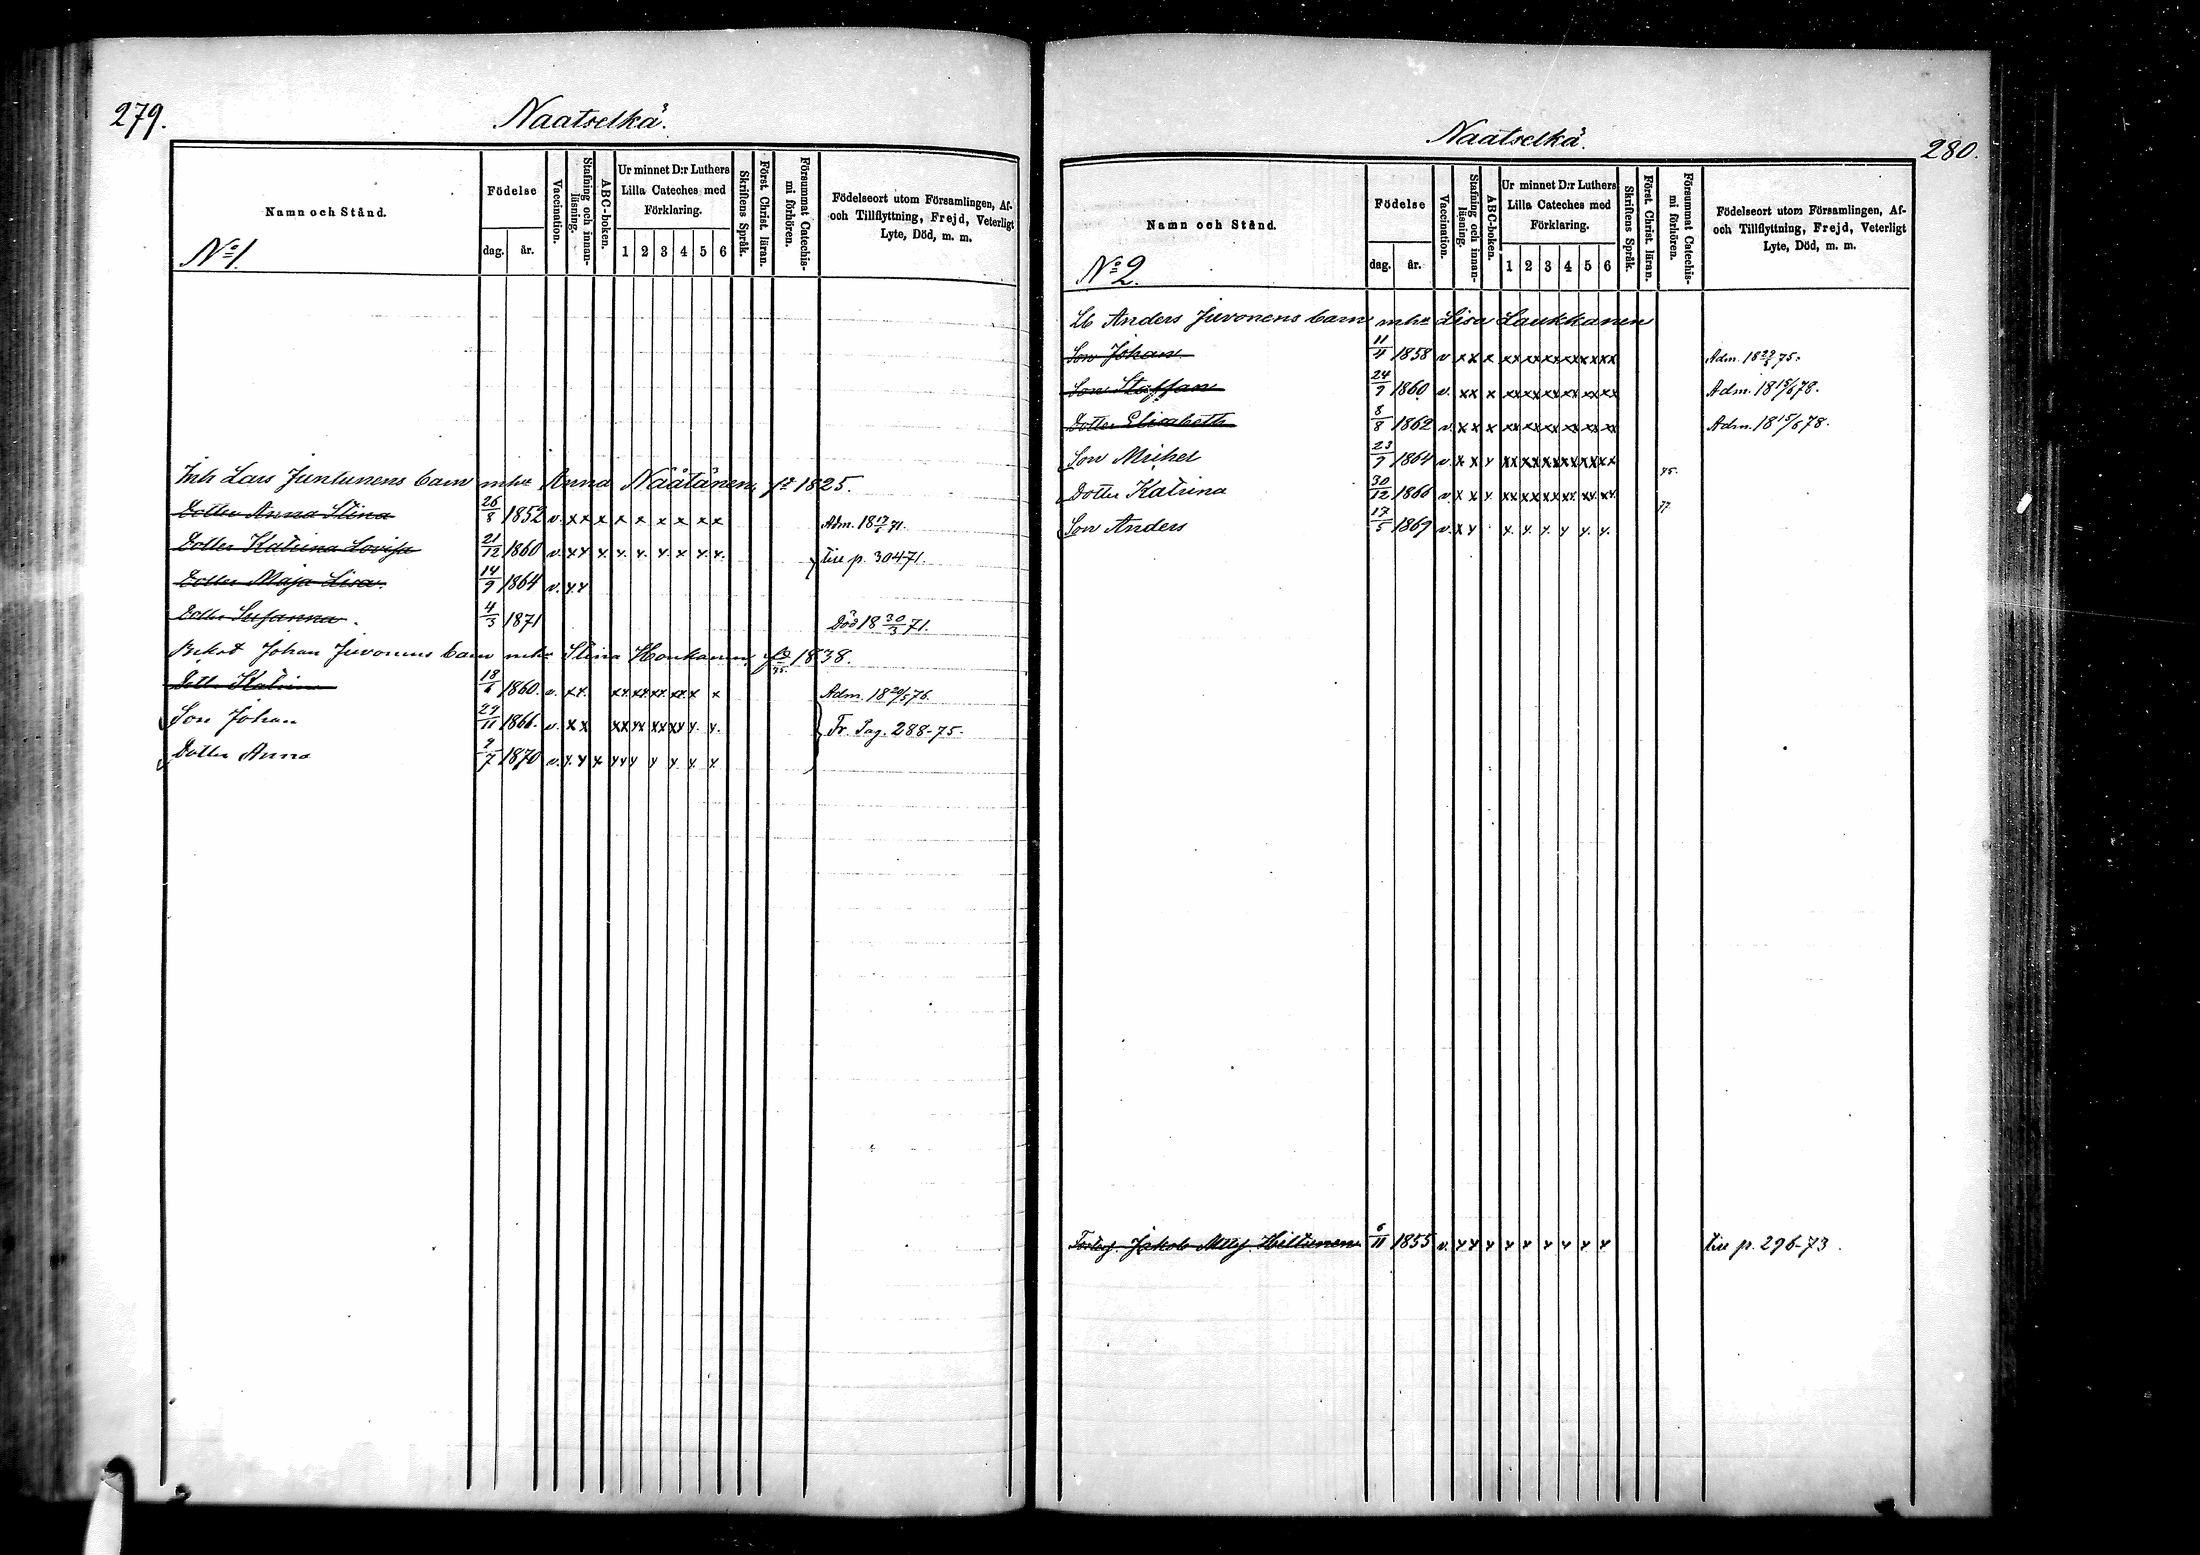 279.
Naatselkä.
Namn och Stånd.
Födelse
dag. år.
Vaccination.
Stafning och innanläsning.
ABC-boken.
Ur minnet D:r Luthers Lilla Cateches med Förklaring.
1 2 3 4 5 6
Skriftens Språk.
Först. Christ. läran.
Försummat Catechismi förhören.
Födelseort utom Församlingen, Af- och Tillflyttning, Frejd, Veterligt Lyte, Död, m. m.
No 1.
Inh Lars Juntunens barn mhu Anna Näätänen, fd 1825.
Dotter Anna Stina 26/8 1852 v. x x x x x x x x x Adm. 18 17/6 71.
Dotter Katrina Lovisa 21/12 1860 v. x x x. x. x. x. x x x. tire p. 304-71.
Dotter Maja Lisa. 14/9 1864 v. x x
Dotter Susanna. 4/3 1871 Död 18 30/3 71.
Johan Jievonens barn mhu Stina Honkanen fd 1838.
75.
Dott. Katrina 18/6 1860. v. x x. xx xx xx. xx x x Adm. 18 20/5 76.
Son Johan 29/11 1866. v. x x xx xx xx xx x. x. Fr. Pag. 288-75.
Dotter Anna 9/7 1870 v. x. x x xx x x x x x
Naatselkä.
280.
Namn och Stånd.
Födelse
dag. år.
Vaccination.
Stafning och innanläsning.
ABC-boken.
Ur minnet D:r Luthers Lilla Cateches med Förklaring.
1 2 3 4 5 6
Skriftens Språk.
Först. Christ. läran.
Försummat Catechismi förhören.
Födelseort utom Församlingen, Af- och Tillflyttning, Frejd, Veterligt Lyte, Död, m. m.
No 2.
Lb Anders Jievonens barn mhu Lisa Laukkanen
Son Johan 11/4 1858 v x x x xx xx xx xx xx xx Adm. 18 75.
Son Staffan 24/9 1860 v. x x x xx xx xx xx xx xx Adm. 18 15/6 78.
Dotter Elisabeth 8/8 1862 v. x x x xx xx xx xx xx xx Adm. 18 15/6 78.
Son Mickel 23/9 1864 v. x x x xx xx xx xx xx xx 75.
Dotter Katrina 30/12 1866 v. x x x. xx xx xx xx. xx xx. 77.
Son Anders 17/5 1869 v. x x x. x. x. x x. x.
Jakob Hiltunen 6/11 1855 v. x x x x x x x x x tire p. 296-73.